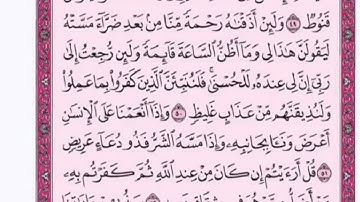 قَنُوطٌ ٤٩ وَلَئِنْ أَذَقْنَٰهُ رَحْمَةً مِّنَّا مِنۢ بَعْدِ ضَرَّآءَ مَسَّتْهُ
لَيَقُولَنَّ هَٰذَا لِى وَمَآ أَظُنُّ ٱلسَّاعَةَ قَآئِمَةً وَلَئِن رُّجِعْتُ إِلَىٰ
رَبِّىٓ إِنَّ لِى عِندَهُۥ لَلْحُسْنَىٰ فَلَنُنَبِّئَنَّ ٱلَّذِينَ كَفَرُوا۟ بِمَا عَمِلُوا۟
وَلَنُذِيقَنَّهُم مِّنْ عَذَابٍ غَلِيظٍ ٥٠ وَإِذَآ أَنْعَمْنَا عَلَى ٱلْإِنسَٰنِ
أَعْرَضَ وَنَـَٔا بِجَانِبِهِۦ وَإِذَا مَسَّهُ ٱلشَّرُّ فَذُو دُعَآءٍ عَرِيضٍ
٥١ قُلْ أَرَءَيْتُمْ إِن كَانَ مِنْ عِندِ ٱللَّهِ ثُمَّ كَفَرْتُم بِهِۦ